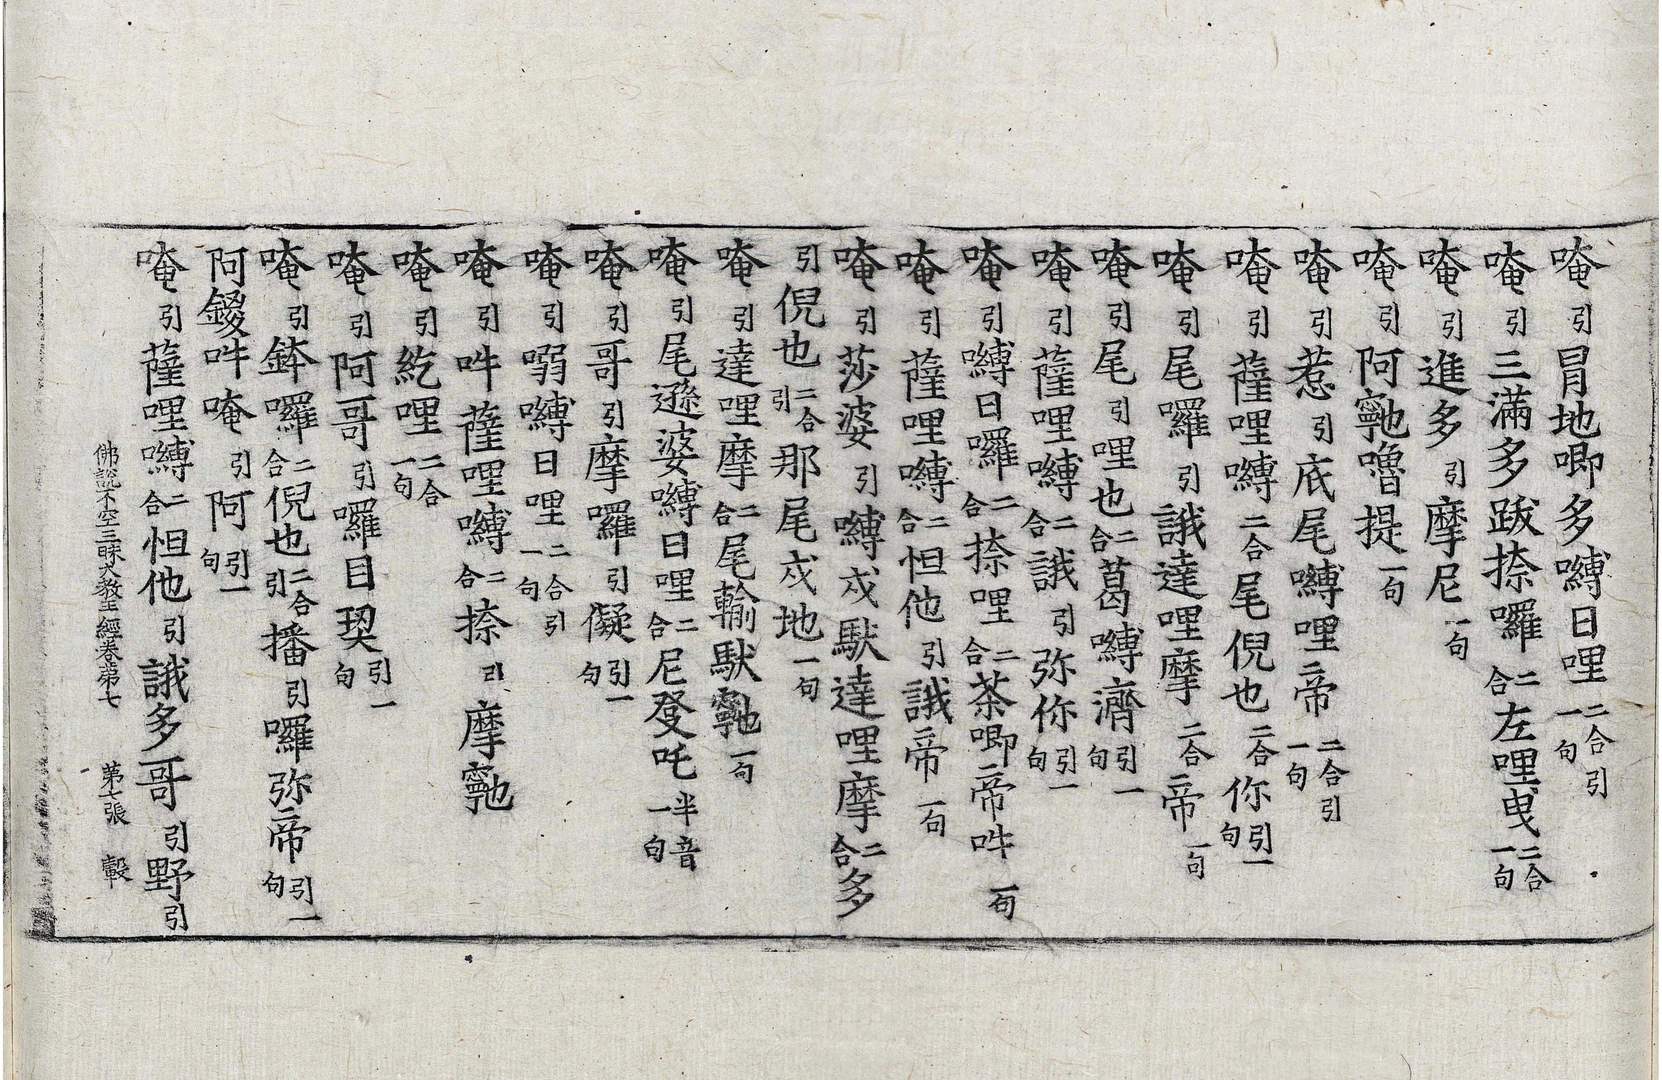 唵引冐地唧多嚩日哩二合引一句
唵引三滿多跋捺囉二合左哩曳二合一句
唵引進多引摩尼一句
唵引阿𩕳嚕提一句
唵引惹引底尾嚩哩帝二合引一句
唵引薩哩嚩二合尾倪也二合你引一句
唵引尾囉引誐達哩摩二合帝一句
唵引尾引哩也二合葛嚩濟引一句
唵引薩哩嚩二合誐引弥你引一句
唵引嚩日囉二合捺哩二合茶唧帝吽一句
唵引薩哩嚩二合怛他引誐帝一句
唵引莎婆引嚩戍馱達哩摩二合多
引倪也二合引那尾戍地一句
唵引達哩摩二合尾輸馱𩕳一句
唵引尾遜婆嚩日哩二合尼發吒半音一句
唵引哥引摩囉引儗引一句
唵引嗢嚩日哩二合引一句
唵引吽薩哩嚩二合捺引摩𩕳
唵引紇哩二合一句
唵引阿哥引囉目契引一句
唵引鉢囉二合倪也二合引播引囉弥帝引一句
阿鑁吽唵引阿引一句
唵引薩哩嚩二合怛他引誐多哥引野引
佛說不空三昧大教王經卷第七 第七張 轂